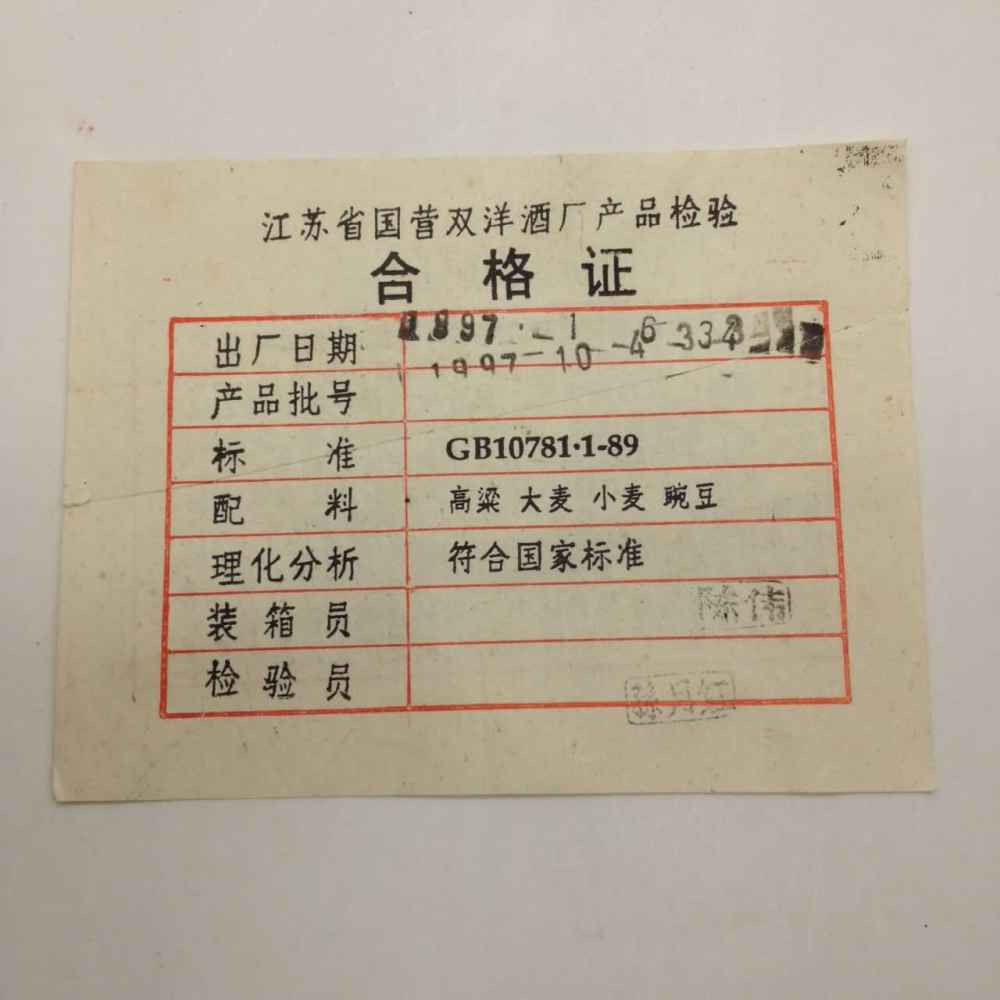 江苏省国营双洋酒厂产品检验
合格证
出厂日期 1997·-1 6-333
1997-10-4
产品批号
标准 GB10781·1-89
配料 高粱 大麦 小麦 豌豆
理化分析 符合国家标准
装箱员 陈伟
检验员 孙月红